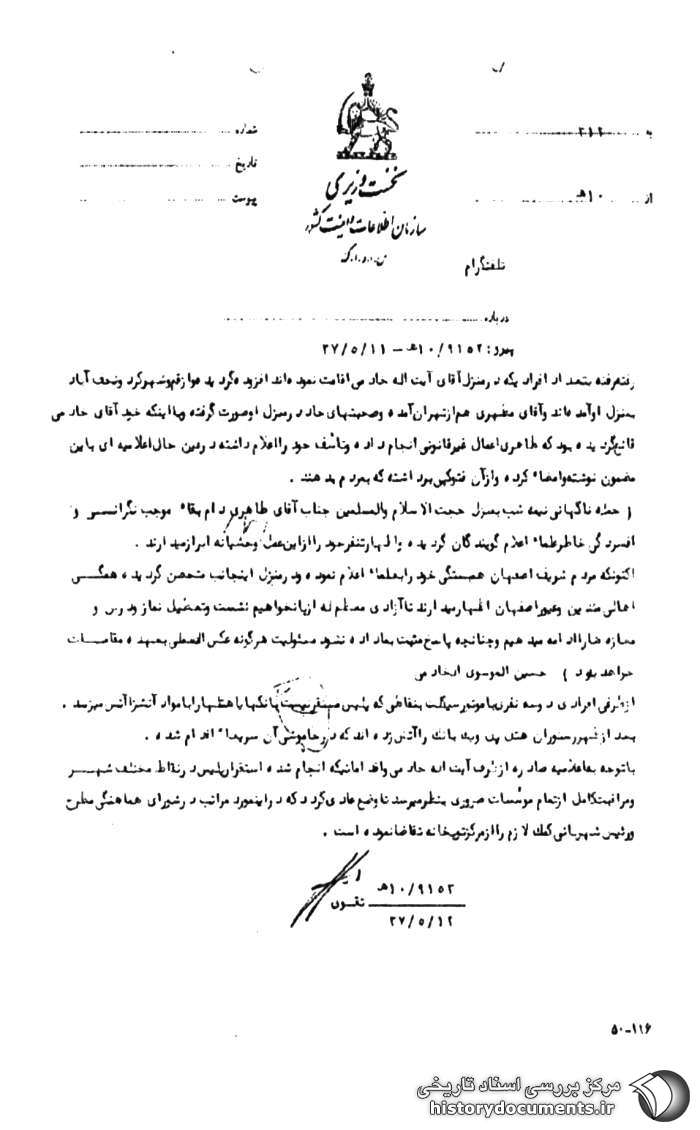 به ۳۱۲
شماره
تاریخ
از ۱۰هـ
پیوست
نخست وزیری
سازمان اطلاعات و امنیت کشور
س.ا.و.ا.ک
تلفنگرام
درباره
پیرو : ۱۰/۹۱۵۲هـ - ۳۷/۵/۱۱
رفته رفته بتعداد افرادیکه در منزل آقای آیت اله خادمی اقامت نموده اند افزوده گردیده و از قم و شهرکرد و نجف آباد
بمنزل او آمده اند و آقای مطهری هم از تهران آمده و صحبتهای حاد در منزل او صورت گرفته و با اینکه خود آقای خادمی
قانع گردیده بود که طاهری اعمال غیرقانونی انجام داده و تأسف خود را اعلام داشته در عین حال اعلامیه ای باین
مضمون نوشته و امضاء کرده و از آن فتوکپی برداشته که بمردم بدهند .
( حمله ناگهانی نیمه شب بمنزل حجت الاسلام والمسلمین جناب آقای طاهری دام بقاء موجب نگرانی و
افسردگی خاطر علماء اعلام گویندگان گردیده و اظهار تنفر خود را از این عمل وحشیانه ابراز میدارند .
اکنونکه مردم شریف اصفهان همبستگی خود را بعلماء اعلام نموده و در منزل اینجانب متحصن گردیده همگی
اهالی متدین و غیور اصفهان اظهار میدارند تا آزادی معظم له از پا نخواهیم نشست و تعطیل نماز و درس و
مغازه ها را ادامه میدهیم و چنانچه پاسخ مثبت بما داده نشود مسئولیت هرگونه عکس العملی بعهده مقامات
خواهد بود ) حسین الموسوی الخادمی
از طرفی افرادی دو سه نفری با موتورسیکلت بنقاطی که پلیس مستقر نیست بانکها یا هتلها را با مواد آتشزا آتش میزنند .
بعد از ظهر رستوران هتل پل و یک بانک را آتش زده اند که در خاموشی آن سریعاً اقدام شده .
با توجه به اعلامیه صادره از طرف آیت اله خادمی و اقداماتیکه انجام شده استقرار پلیس در نقاط مختلف شهر
و مراقبت کامل از تمام مؤسسات ضروری بنظر میرسد تا وضع عادی گردد که در اینمورد مراتب در شورای هماهنگی مطرح
و رئیس شهربانی کمک لازم را از مرکز توپخانه تقاضا نموده است .
۱۰/۹۱۵۲هـ
تقوی
۳۷/۵/۱۲
۵۰-۱۱۶
مرکز بررسی اسناد تاریخی
historydocuments.ir